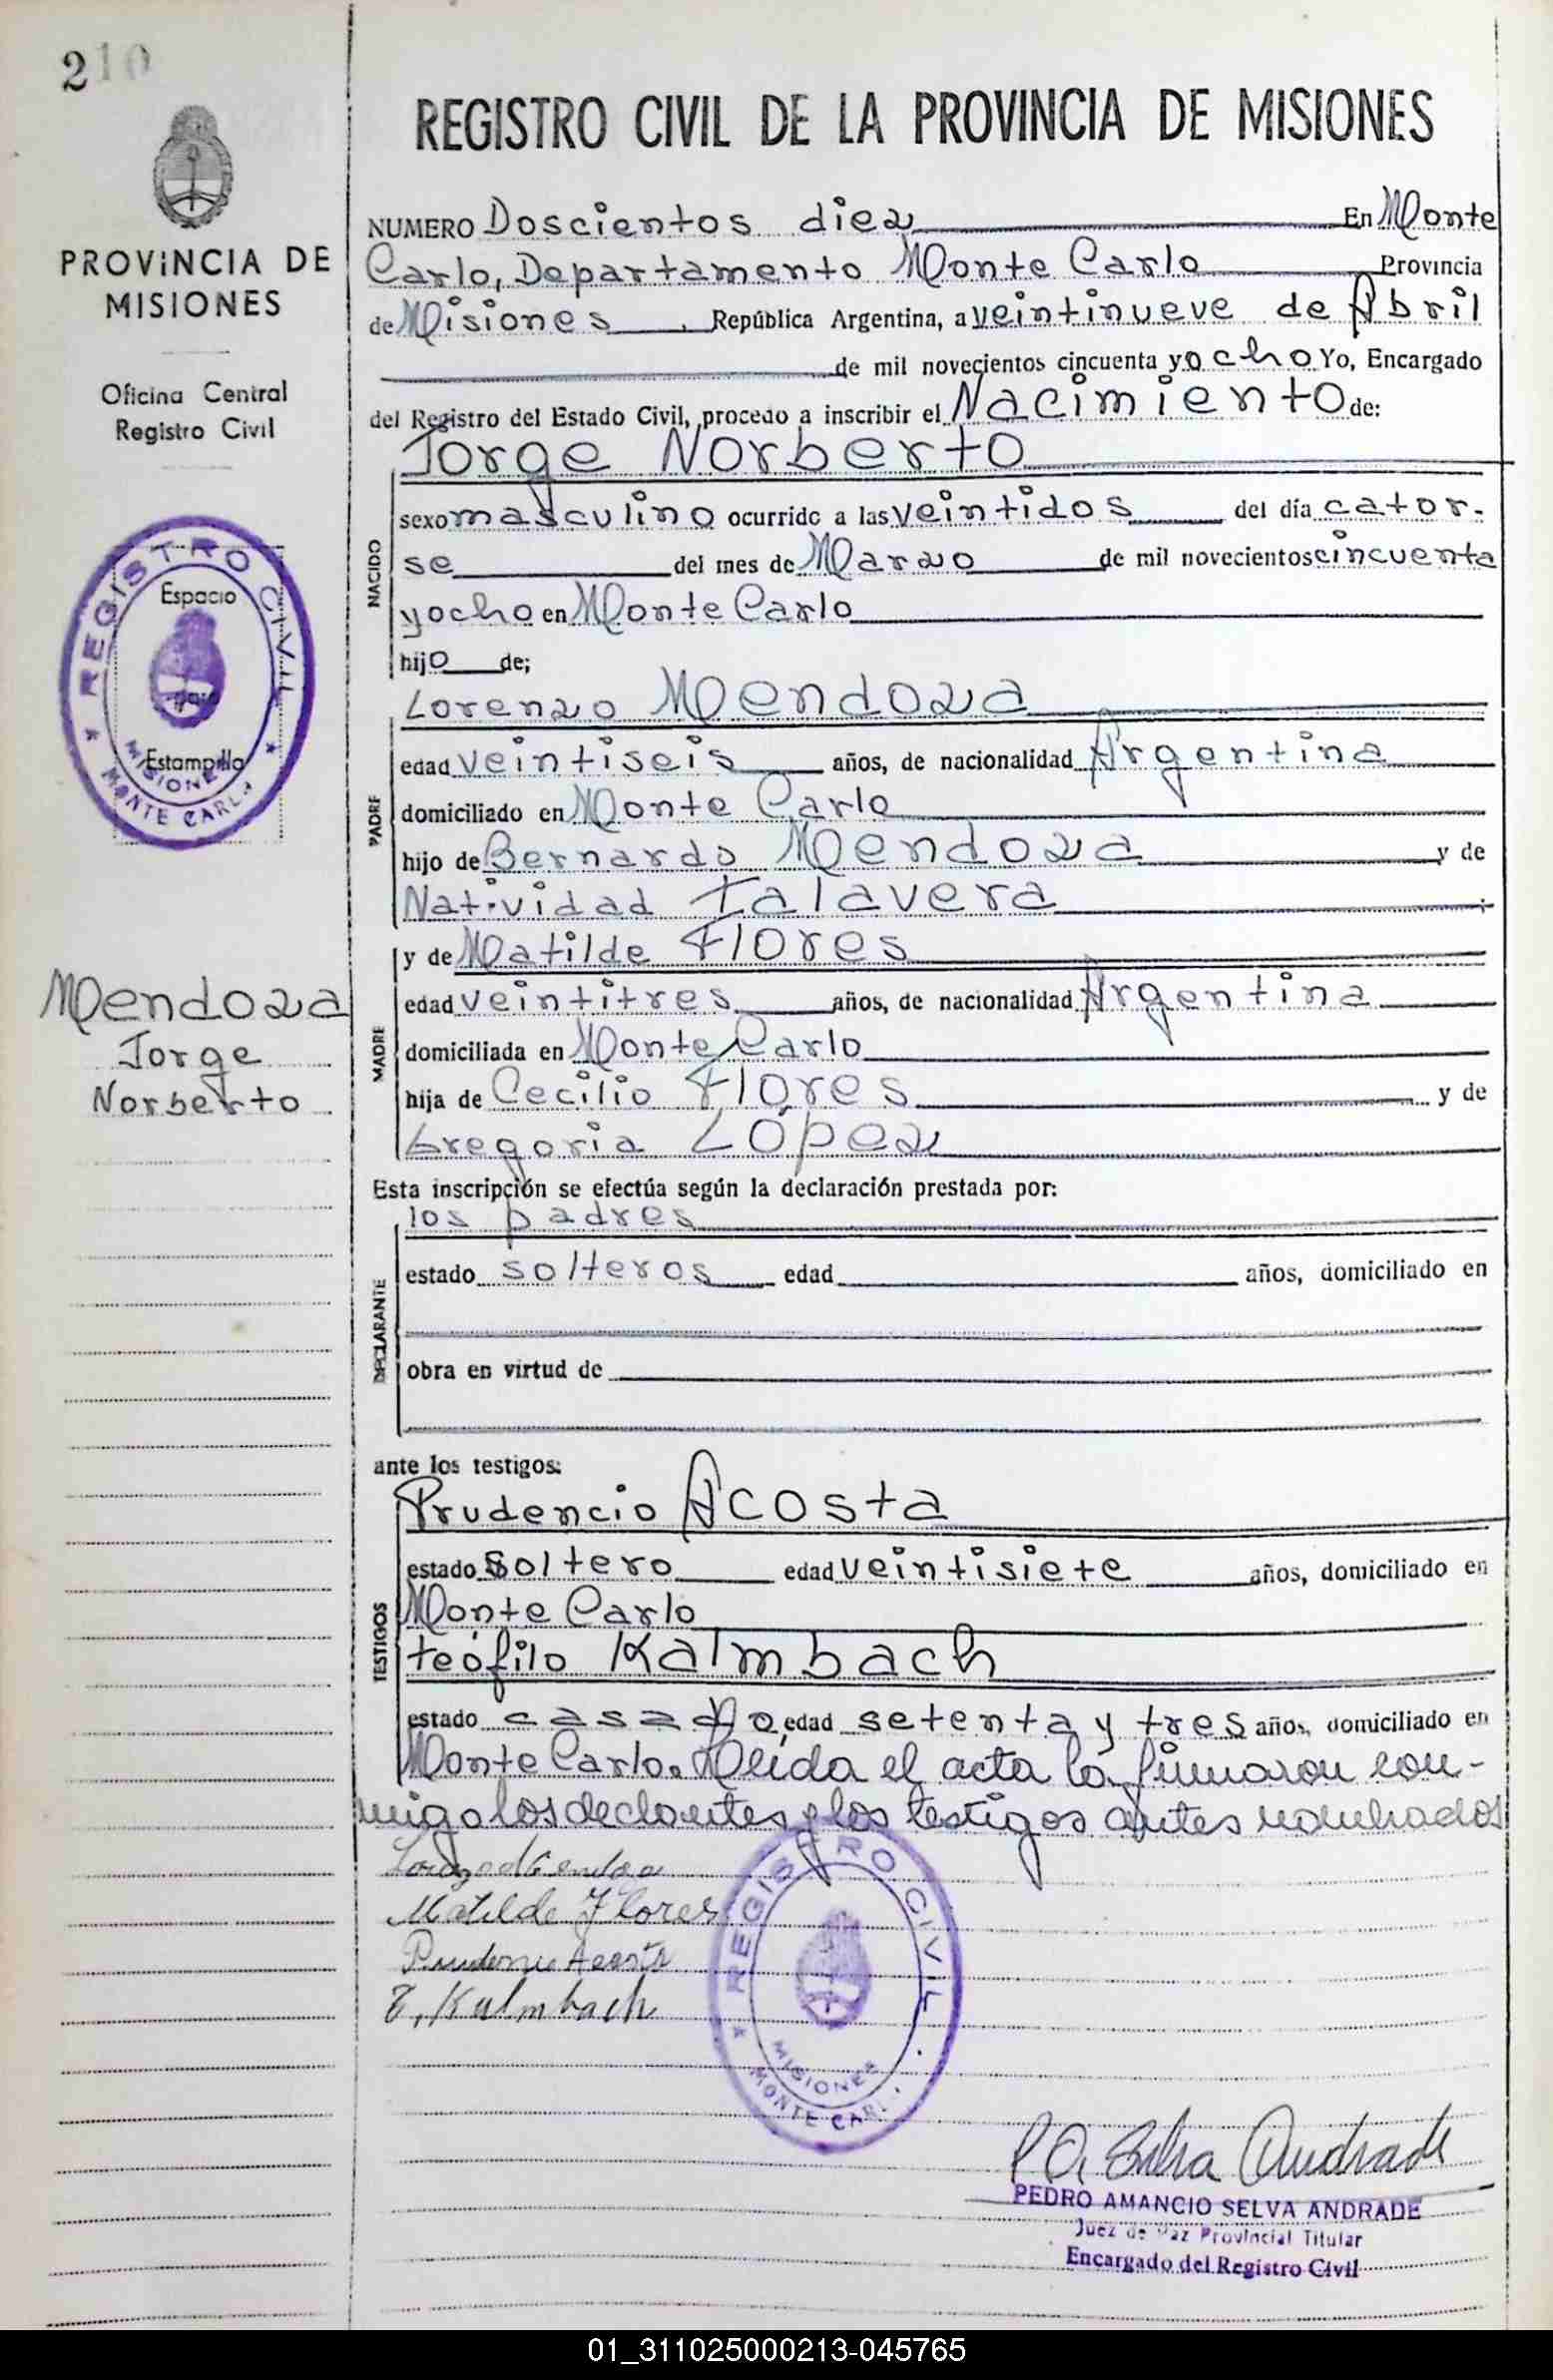 210
PROVINCIA DE
MISIONES
Oficina Central
Registro Civil
REGISTRO CIVIL
Espacio
para
Estampilla
MISIONES
MONTE CARLO
Mendoza
Jorge
Norberto
REGISTRO CIVIL DE LA PROVINCIA DE MISIONES
NUMERO Doscientos diez En Monte
Carlo, Departamento Monte Carlo Provincia
de Misiones República Argentina, a veintinueve de Abril
de mil novecientos cincuenta y ocho Yo, Encargado
del Registro del Estado Civil, procedo a inscribir el Nacimiento de:
Jorge Norberto
NACIDO
sexo masculino ocurrido a las veintidos del día cator-
se del mes de Marzo de mil novecientos cincuenta
y ocho en Monte Carlo
hijo de;
Lorenzo Mendoza
PADRE
edad veintiseis años, de nacionalidad Argentina
domiciliado en Monte Carlo
hijo de Bernardo Mendoza y de
Natividad Talavera
MADRE
y de Matilde Flores
edad veintitres años, de nacionalidad Argentina
domiciliada en Monte Carlo
hija de Cecilio Flores y de
Gregoria López
Esta inscripción se efectúa según la declaración prestada por:
los padres
DECLARANTE
estado solteros edad años, domiciliado en
obra en virtud de
ante los testigos:
Prudencio Acosta
TESTIGOS
estado soltero edad veintisiete años, domiciliado en
Monte Carlo
teófilo Kalmbach
estado casado edad setenta y tres años, domiciliado en
Monte Carlo. Leída el acta la firmaron con-
migo los declantes y los testigos antes nombrados
Matilde Flores
Acosta
T. Kalmbach
REGISTRO CIVIL
MISIONES
MONTE CARLO
P. A. Selva Andrade
PEDRO AMANCIO SELVA ANDRADE
Juez de Paz Provincial Titular
Encargado del Registro Civil
01_311025000213-045765